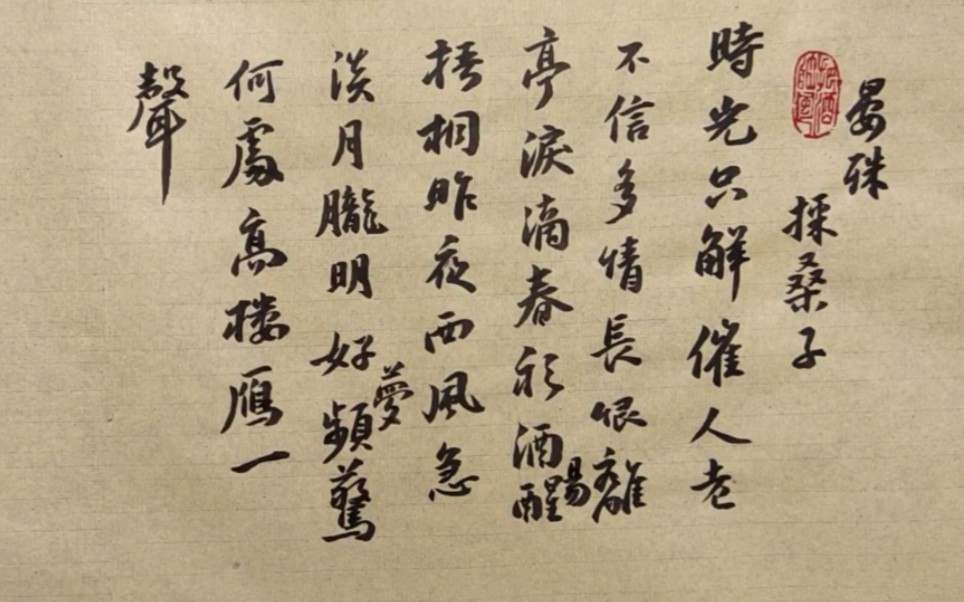 晏殊
採桑子
時光只解催人老
不信多情長恨離
亭淚滴春衫酒易醒
梧桐昨夜西風急
淡月朧明好夢頻驚
何處高樓雁一
聲